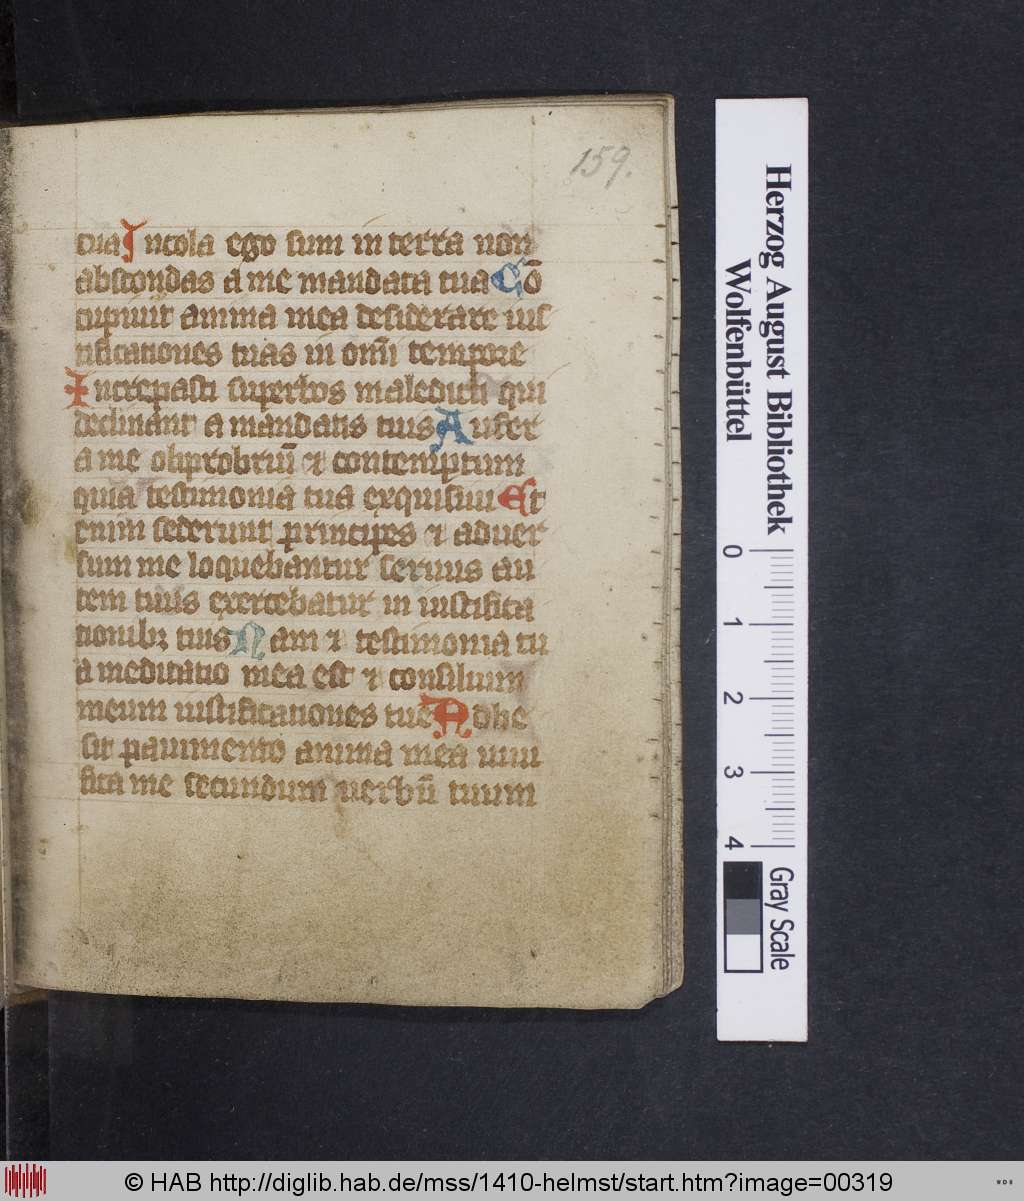 159.
tua Incola ego sum in terra non
abscondas a me mandata tua Cō
cupiuit anima mea desiderare ius
tificationes tuas in omi tempore
Increpasti superbos maledicti qui
declinant a mandatis tuis Aufer
a me obprobriū ⁊ contemptum
quia testimonia tua exquisiui Et
enim sederunt principes ⁊ aduer
sum me loquebantur seruus au
tem tuus exercebatur in iustifica
tionibꝫ tuis Nam ⁊ testimonia tu
a meditatio mea est ⁊ consilium
meum iustificationes tue Adhe
sit pauimento anima mea uiui
fica me secundum uerbū tuum
Herzog August Bibliothek
Wolfenbüttel
0 1 2 3 4
Gray Scale
© HAB http://diglib.hab.de/mss/1410-helmst/start.htm?image=00319